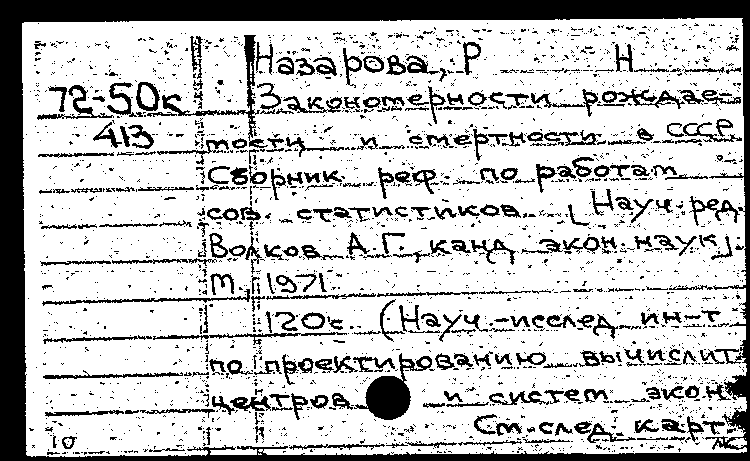 Назарова, Р Н
72-50к Закономерности рождае-
413 мости и смертности в СССР
Сборник реф. по работам
сов. статистиков. [Науч. ред.
Волков А.Г., канд. экон. наук].
М., 1971.
120с. (Науч.-исслед. ин-т
по проектированию вычислит.
центров и систем экон.
См. след. карт.
10